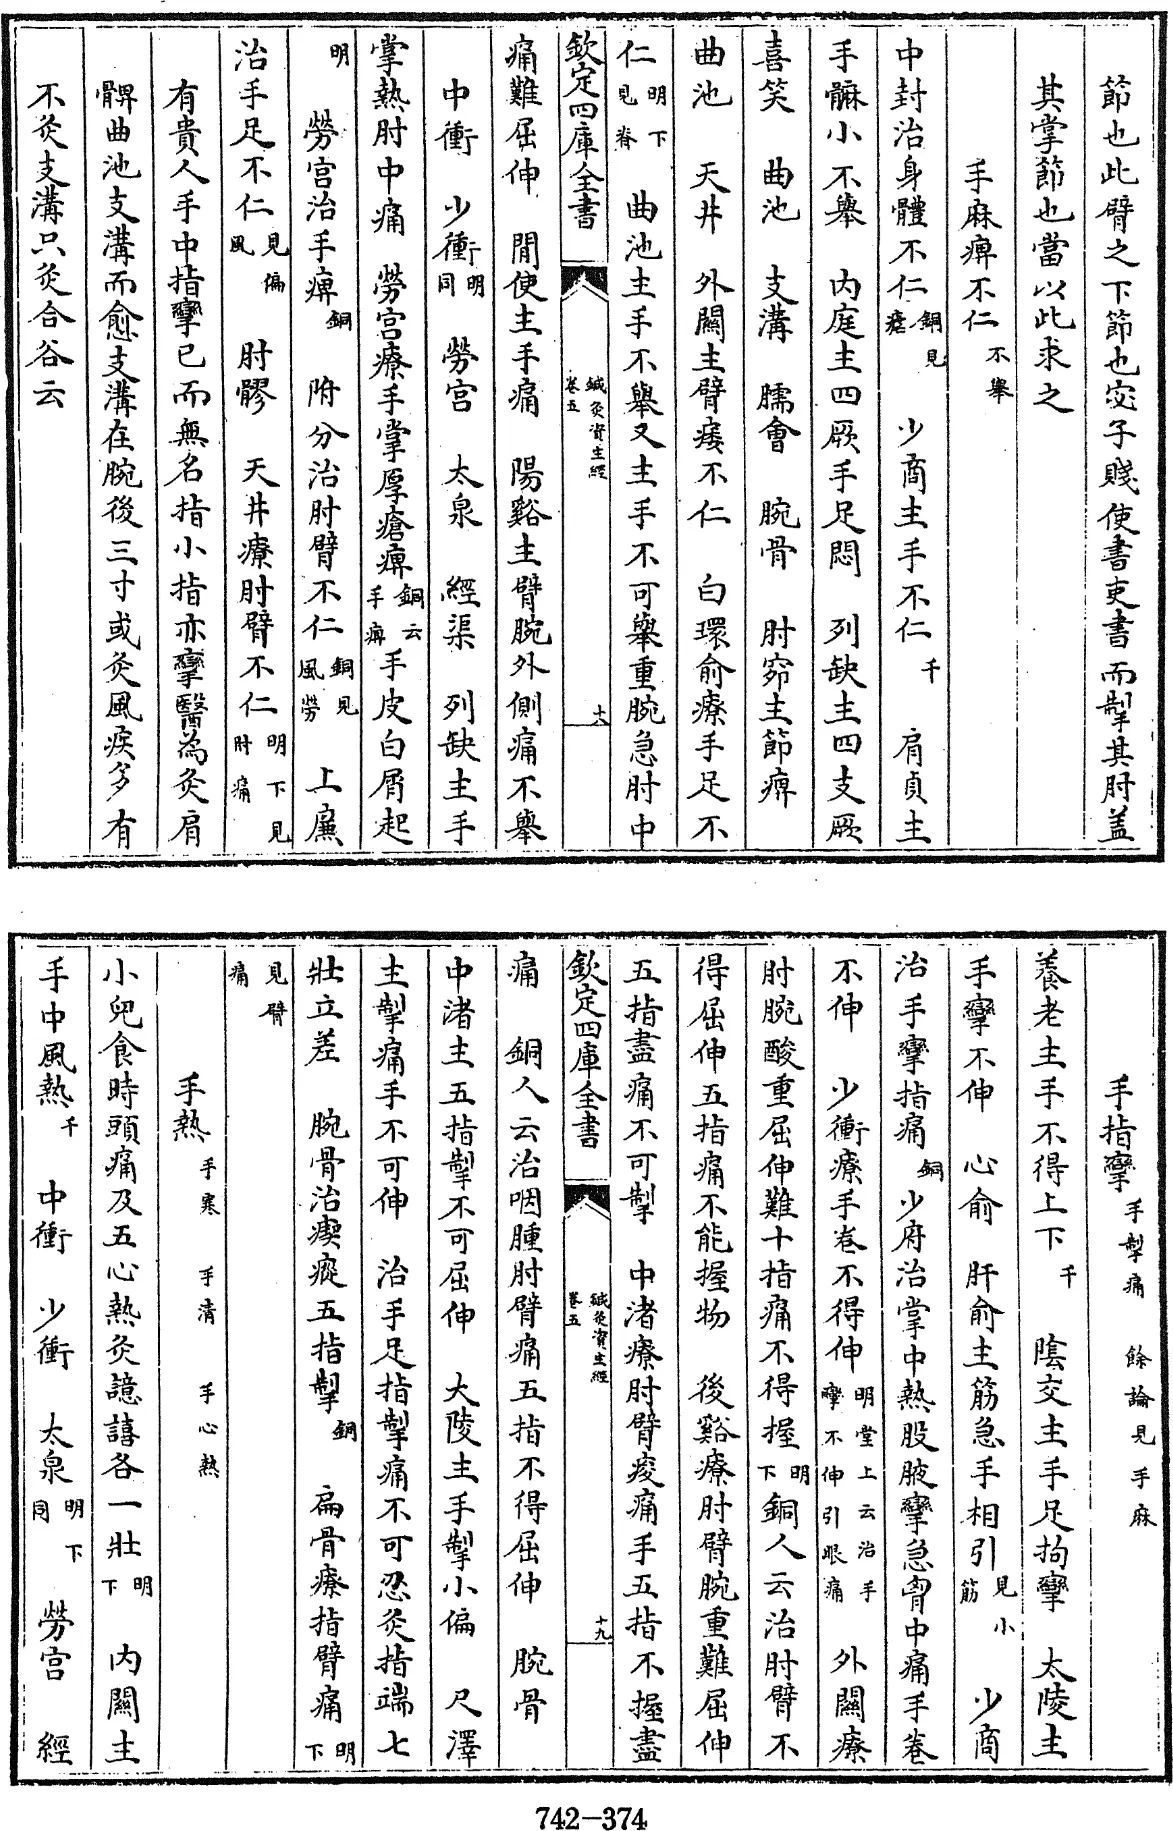 節也此臂之下節也宓子賤使書吏書而掣其肘盖
其掌節也當以此求之
手麻痺不仁不舉
中封治身體不仁銅見瘧 少商主手不仁千 肩貞主
手髍小不舉 内庭主四厥手足悶 列缺主四支厥
喜笑 曲池 支溝 臑會 腕骨 肘窌主節痺
曲池 天井 外關主臂痿不仁 白環俞療手足不
仁明下見脊 曲池主手不舉又主手不可舉重腕急肘中
欽定四庫全書 鍼灸資生經卷五 十八
痛難屈伸 間使主手痛 陽谿主臂腕外側痛不舉
中衝 少衝明同 勞宫 太泉 經渠 列缺主手
掌熱肘中痛 勞宫療手掌厚瘡痺銅云手痺手皮白屑起
明 勞宫治手痺銅 附分治肘臂不仁銅見風勞 上廉
治手足不仁見偏風 肘髎 天井療肘臂不仁明下見肘痛
有貴人手中指攣已而無名指小指亦攣醫為灸肩
髃曲池支溝而愈支溝在腕後三寸或灸風疾多有
不灸支溝只灸合谷云
手指攣手掣痛 餘論見手麻
養老主手不得上下千 陰交主手足拘攣 太陵主
手攣不伸 心俞 肝俞主筋急手相引見小筋 少商
治手攣指痛銅 少府治掌中熱股腋攣急胷中痛手卷
不伸 少衝療手卷不得伸明堂上云治手攣不伸引眼痛 外關療
肘腕酸重屈伸難十指痛不得握明下銅人云治肘臂不
得屈伸五指痛不能握物 後谿療肘臂腕重難屈伸
五指盡痛不可掣 中渚療肘臂痠痛手五指不握盡
欽定四庫全書 鍼灸資生經卷五 十九
痛 銅人云治咽腫肘臂痛五指不得屈伸 腕骨
中渚主五指掣不可屈伸 大陵主手掣小偏 尺澤
主掣痛手不可伸 治手足指掣痛不可忍灸指端七
壯立差 腕骨治瘈瘲五指掣銅 扁骨療指臂痛明下
見臂痛
手熱手寒 手清 手心熱
小兒食時頭痛及五心熱灸譩譆各一壯明下 内關主
手中風熱千 中衝 少衝 太泉明下同 勞宫 經
742-374